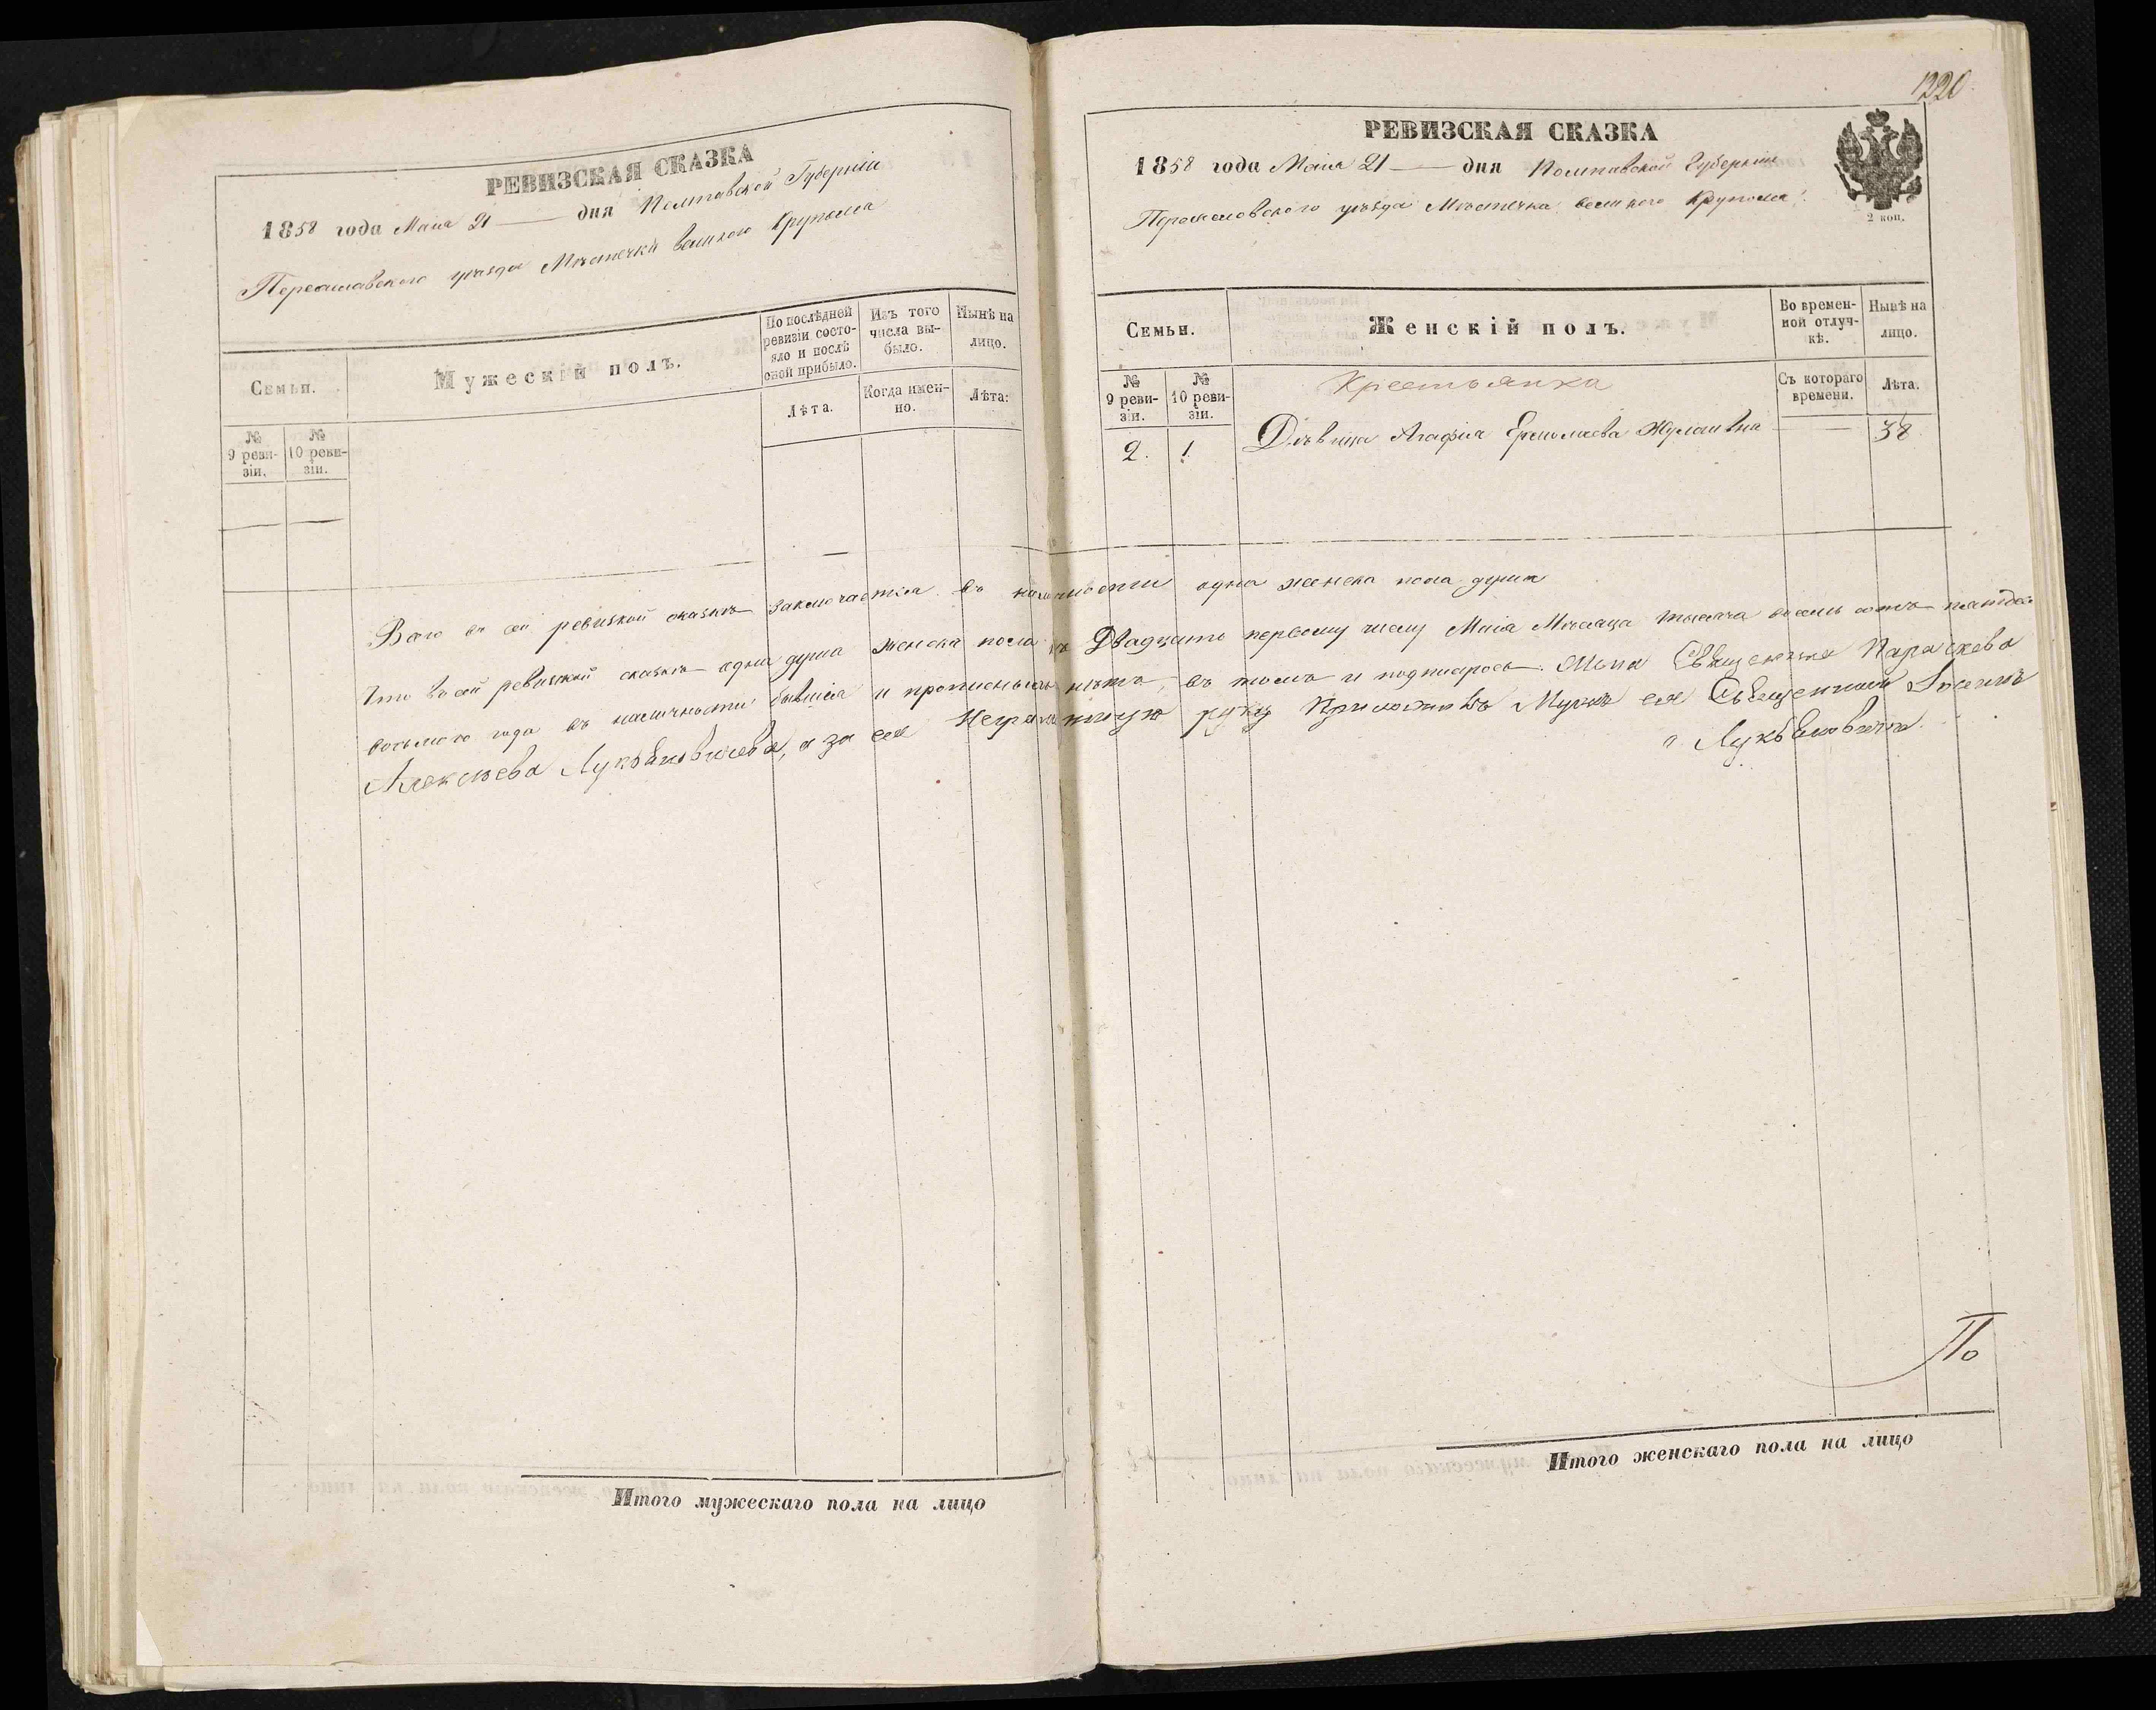 РЕВИЗСКАЯ СКАЗКА
1858 года Маія 21 — дня Полтавской Губерніи
Переяславскаго уѣзда Мѣстечка Великого Крупола
Семьи.
Мужескій полъ.
По послѣдней ревизіи состояло и послѣ оной прибыло.
Изъ того числа выбыло.
Нынѣ на лицо.
Лѣта.
Когда именно.
Лѣта:
№ 9 ревизіи.
№ 10 ревизіи.
Всего въ сей ревизкой сказкѣ заключается въ наличности одна женска пола душа
Что въ сей ревизкой сказкѣ одна душа женска пола къ Двадцать первому числу Маія Мѣсяца тысяча восемь сотъ пятдесятъ
восьмого года въ наличности бывшіа и прописныхъ нѣтъ, въ томъ и подписуюсь. Жена Священика Параскева
Алексѣева Лукьяновичева, а за ея Неграматную руку Приложилъ Мужъ ея Священникъ
Лукьяновичъ.
Итого мужескаго пола на лицо
1220
РЕВИЗСКАЯ СКАЗКА
1858 года Маія 21 — дня Полтавской Губерніи
Переяславского уѣзда Мѣстечка Великого Крупола.
2 коп.
Семьи.
Женскій полъ.
Во временной отлучкѣ.
Нынѣ на лицо.
№ 9 ревизіи.
№ 10 ревизіи.
Крестьянка
Съ котораго времени.
Лѣта.
2. 1 Дѣвица Агафія Ермолаева — 38.
По
Итого женскаго пола на лицо